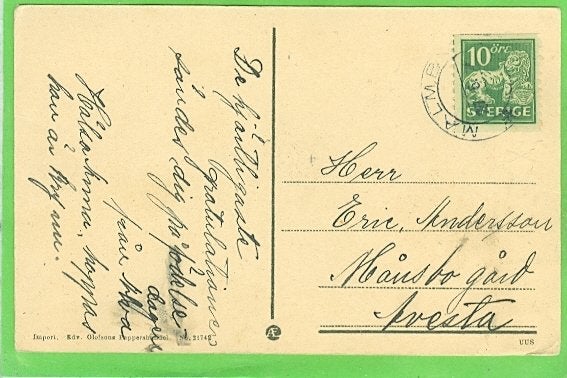 De hjärtligaste
gratulationer
sändes dig på födelse-
dagen
från Alva
Hälsa Anna, hoppas
hon är bra nu.
10 ÖRE
SVERIGE
MALMB
Herr
Eric, Andersson
Månsbo gård
Avesta
Import. Edv. Olofsons Pappershandel. No. 21742
Æ
UUS